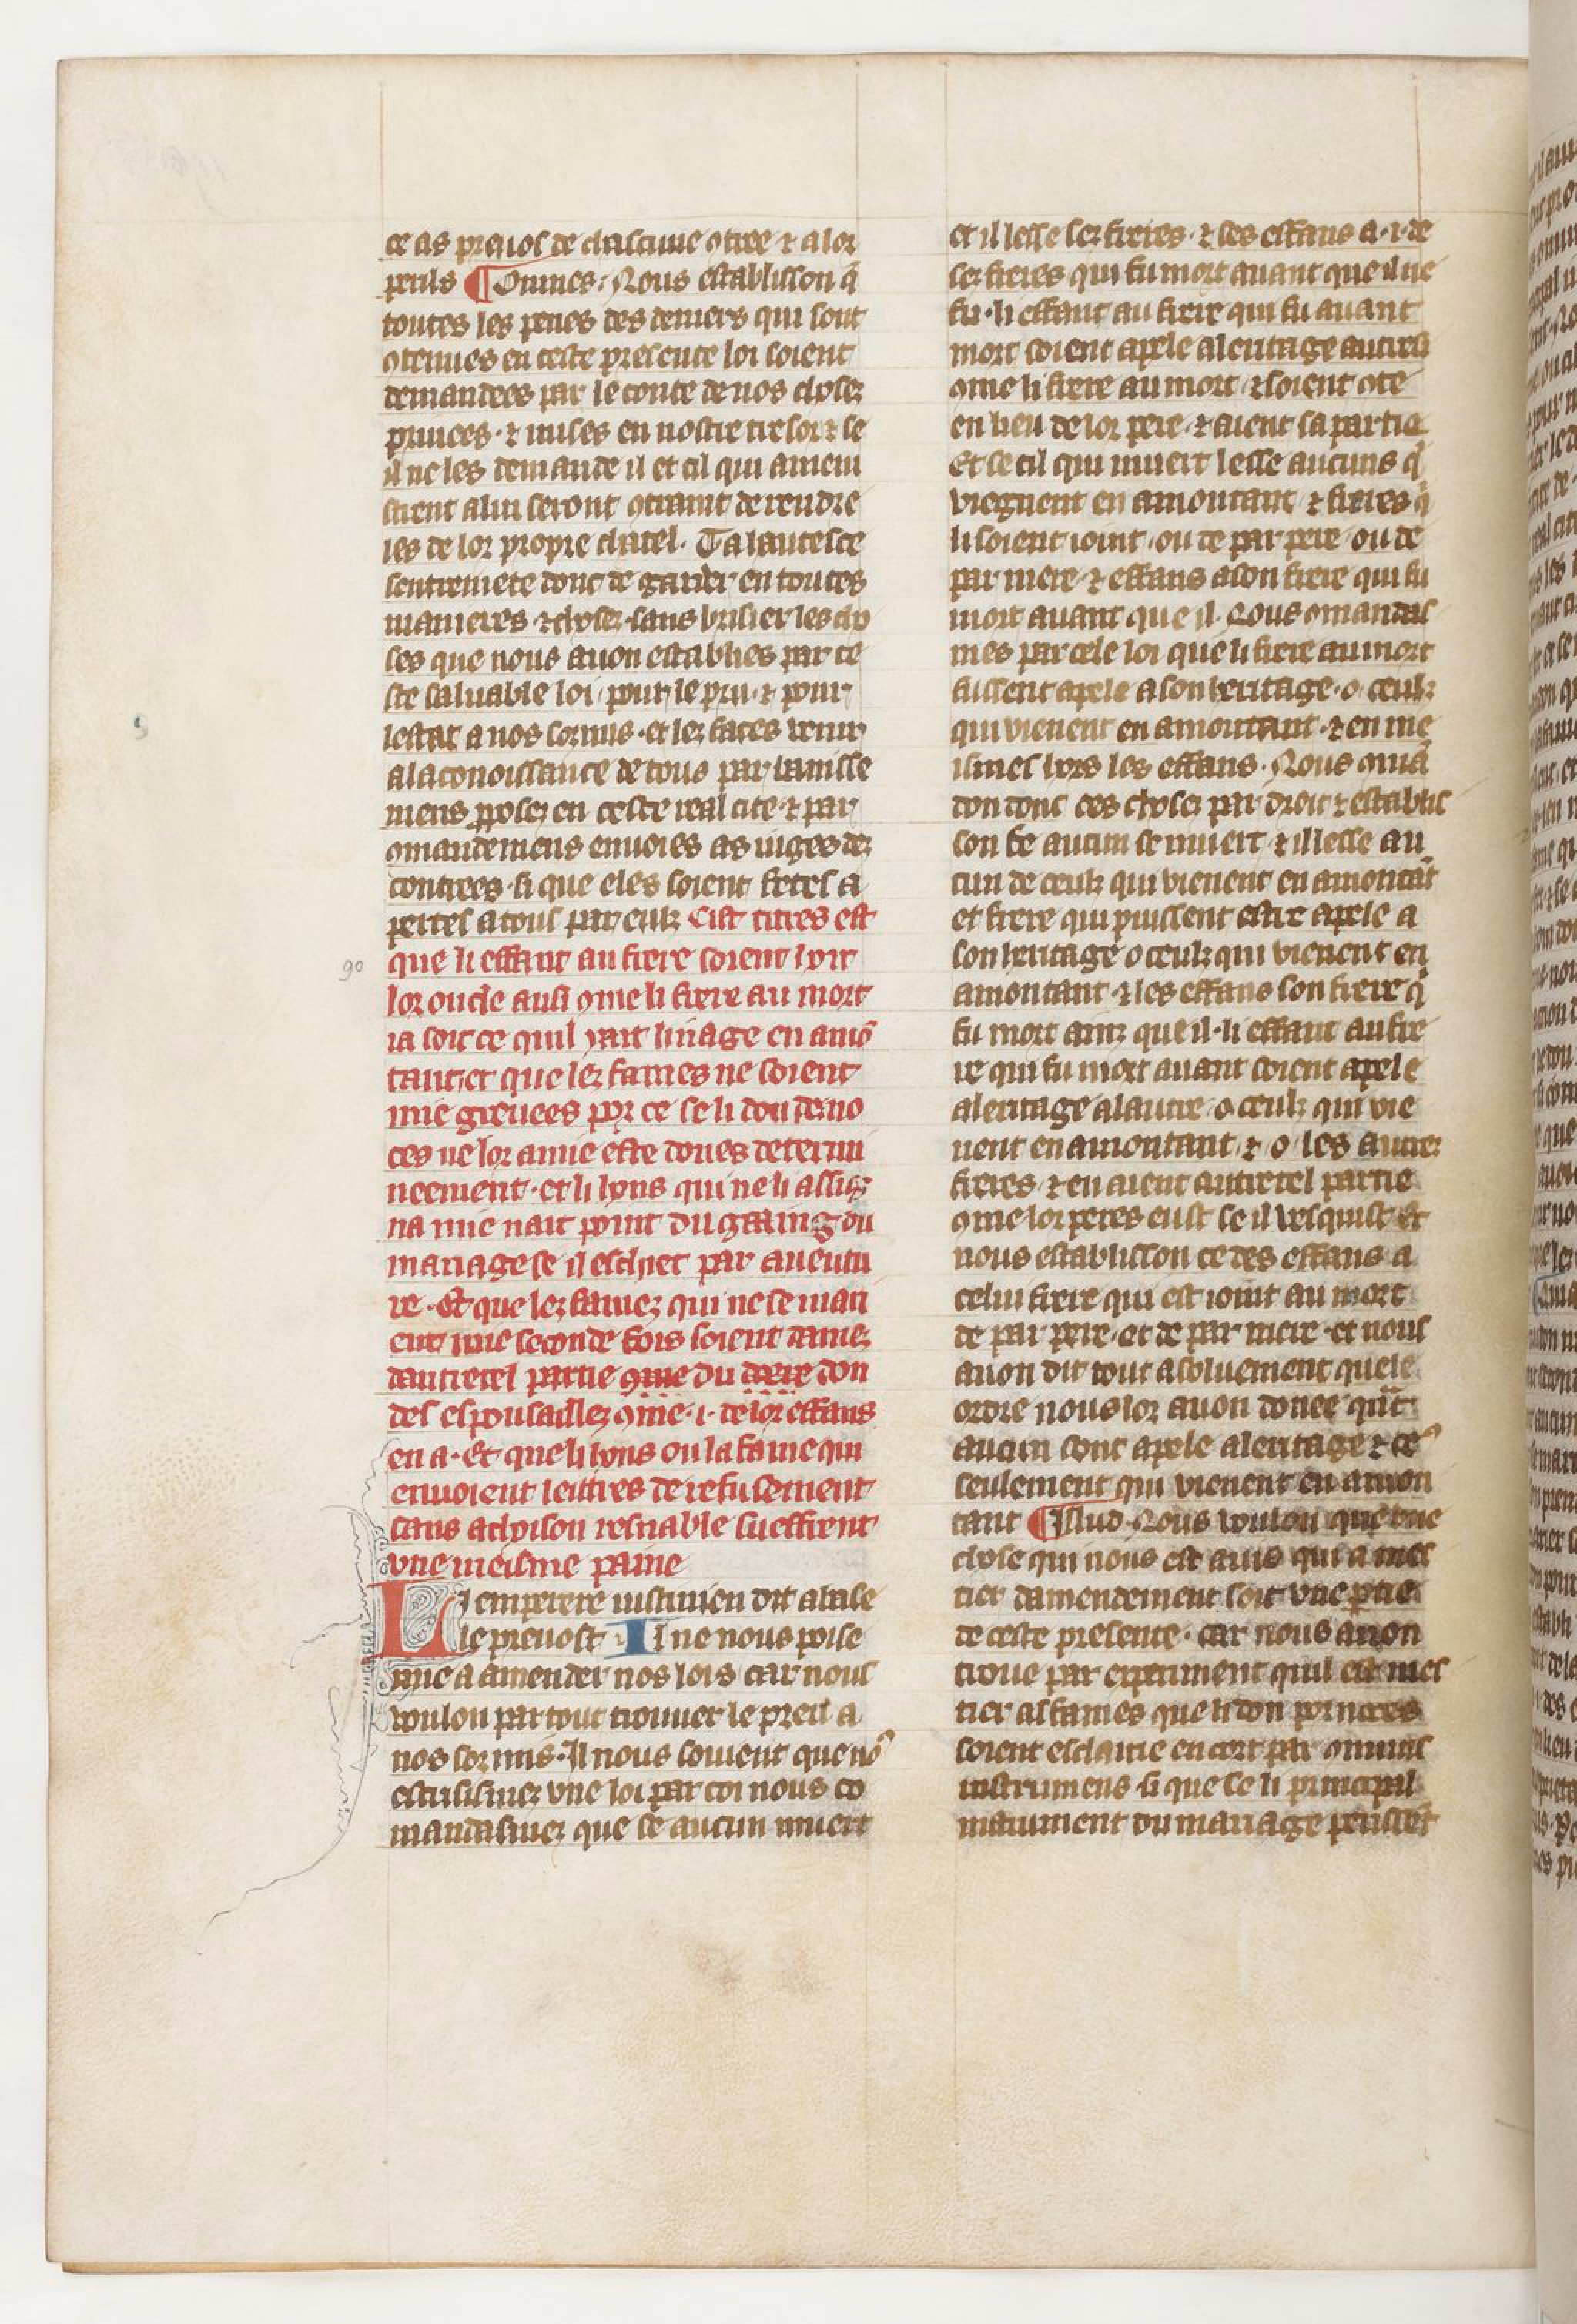 ce as preuos de chascune ꝯtree ⁊ a lor
perils ¶ Omnes· Nous establisson q̄
toutes les peines des deniers qui sont
ꝯtenues en ceste presente loi soient
demandees par le conte de nos choses
princes· ⁊ mises en nostre tresor ⁊ se
il ne les demande il et cil qui amein
strent a lui seront ꝯtraint de rendre
les de lor propre chatel· Ta hautesce
sentremete donc de garder en toutes
manieres ⁊ choses sans brisier les cho
ses que nous auon establies par ce
ste saluable loi pour le preu ⁊ pour
lestat a nos sozmis· et les faces venir
a la conoissance de tous par banisse
mens ꝓposez en ceste real cite ⁊ par
ꝯmandemens enuoies as iuges des
contrees· si que eles soient fetes a
pertes a tous par eulz Cist titres est
que li effant au frere soient hoir
lor oncle ausi ꝯme li frere au mort
ia soit ce quil yait linage en amō
tant et que lez fames ne soient
mie greuees por ce se li don de no
ces ne lor a mie este dones determi
neement· et li hons qui ne li assig
na mie nait point du gaaing du
mariage se il eschiet par auentu
re· Et que lez fames qui ne se mari
ent mie seconde fois soient dames
dautretel partie ꝯme du don
des espousaillez ꝯme ·i· de lor effans
en a· Et que li hons ou la fame qui
enuoient lettres de refusement
sans achoison resnable sueffrent
vne meisme paine
Li emperere iustinien dit a iale
le preuost· Il ne nous poise
mie a amender nos lois car nous
voulon par tout trouuer le preu a
nos sozmis· Il nous souient que no9
escrisismes vne loi par coi nous co
mandasmes que se aucun muert
et il lesse ses freres· ⁊ les effans a ·i· de
ses freres qui fu mort auant que il ne
fu· li effant au frere qui fu auant
mort soient apele a leritage autresi
ꝯme li frere au mort ⁊ soient ꝯte
en lieu de lor pere ⁊ aient sa partie
Et se cil qui muert lesse aucuns q̄
viegnent en amontant ⁊ freres q̄
li soient ioint ou de par pere ou de
par mere ⁊ effans a son frere qui fu
mort auant que il· Nous ꝯmandas
mes par cele loi que li frere au mort
fussent apele a son heritage· o ceulz
qui vienent en amontant ⁊ en me
ismes lors les effans· Nous ꝯmā
don donc ces choses par droit ⁊ establis
son se aucun se muert ⁊ il lesse au
cun de ceulz qui vienent en amontāt
et frere qui puissent estre apele a
son heritage o ceulz qui vienent en
amontant ⁊ les effans son frere q̄
fu mort ainz que il· li effant au fre
re qui fu mort auant soient apele
a leritage a lautre o ceulz qui vie
nent en amontant ⁊ o les autres
freres ⁊ en aient autretel partie
ꝯme lor peres eust se il vesquist Et
nous establisson ce des effans a
celui frere qui est ioint au mort
de par pere et de par mere et nous
auon dit tout asoluement quele
ordre nous lor auon donee quāt
aucun sont apele a leritage ⁊ ce
seulement qui vienent en amon
tant ¶ Illud· Nous voulon que vne
chose qui nous est auis qui a mes
tier damendement soit vne ꝑtie
de ceste presente· car nous auon
troue par experiment quil est mes
tier as fames que li don por noces
soient esclarie en cort par ꝯmuns
instrumens si que se li principal
instrument du mariage perissēt